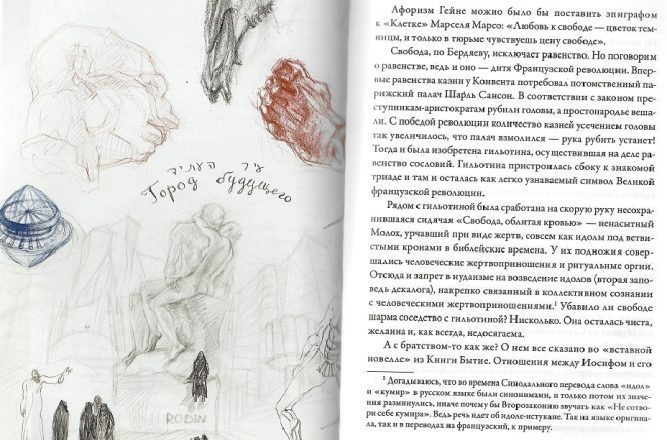 עיר העתיד
Город будущего
RODIN
Афоризм Гейне можно было бы поставить эпиграфом
к «Клетке» Марселя Марсо: «Любовь к свободе — цветок тем-
ницы, и только в тюрьме чувствуешь цену свободе».
Свобода, по Бердяеву, исключает равенство. Но поговорим
о равенстве, ведь и оно — дитя Французской революции. Впер-
вые равенства казни у Конвента потребовал потомственный па-
рижский палач Шарль Сансон. В соответствии с законом пре-
ступникам-аристократам рубили головы, а простонародье веша-
ли. С победой революции количество казней усечением головы
так увеличилось, что палач взмолился — рука рубить устанет!
Тогда и была изобретена гильотина, осуществившая на деле ра-
венство сословий. Гильотина пристроилась сбоку к знакомой
триаде и там и осталась как легко узнаваемый символ Великой
французской революции.
Рядом с гильотиной была сработана на скорую руку несохра-
нившаяся сидячая «Свобода, облитая кровью» — ненасытный
Молох, урчавший при виде жертв, совсем как идолы под ветви-
стыми кронами в библейские времена. У их подножия совер-
шались человеческие жертвоприношения и ритуальные оргии.
Отсюда и запрет в иудаизме на возведение идолов (вторая запо-
ведь декалога), накрепко связанный в коллективном сознании
с человеческими жертвоприношениями.¹ Убавило ли свободе
шарма соседство с гильотиной? Нисколько. Она осталась чиста,
желанна и, как всегда, недосягаема.
А с братством-то как же? О нем все сказано во «вставной
новелле» из Книги Бытие. Отношения между Иосифом и его
¹ Догадываюсь, что во времена Синодального перевода слова «идол»
и «кумир» в русском языке были синонимами, и только потом их значе-
ния разминулись, иначе почему бы Второзаконию звучать как «Не сотво-
ри себе кумира». Ведь речь идет об идоле-истукане. Так на языке оригина-
ла, так и в переводах на французский, к примеру.